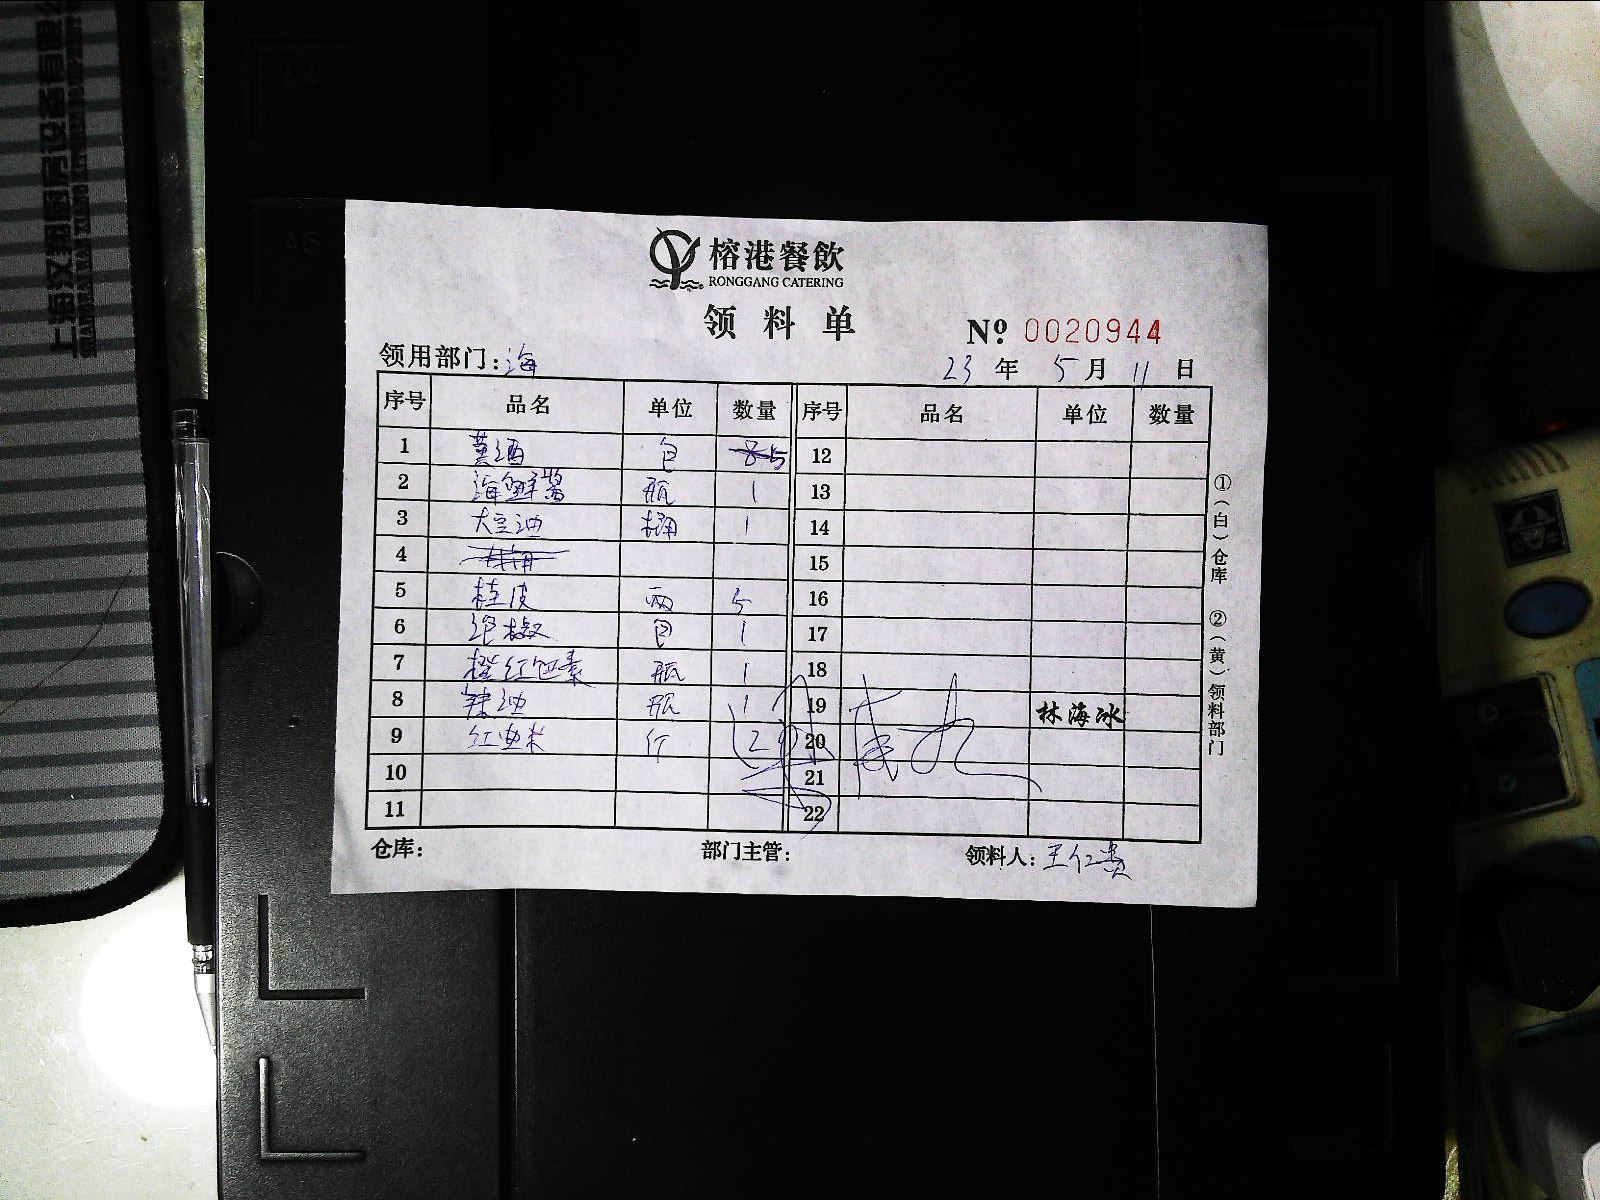 榕港餐飲
RONGGANG CATERING
领料单
№ 0020944
领用部门：海
23 年 5 月 11 日
序号 品名 单位 数量 序号 品名 单位 数量
1 黄酒 包 5 12
2 海鲜酱 瓶 1 13
3 大豆油 桶 1 14
4 15
5 桂皮 两 5 16
6 包 1 17
7 橙红色素 瓶 1 18
8 辣油 瓶 1 19 林海冰
9 红曲米 斤 2 20
10 21
11 22
仓库： 部门主管： 领料人：王仁贵
①（白）仓库 ②（黄）领料部门
A4
A5